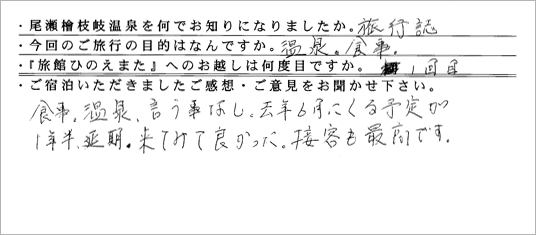 ・尾瀬檜枝岐温泉を何でお知りになりましたか。旅行誌
・今回のご旅行の目的はなんですか。温泉。食事。
・『旅館ひのえまた』へのお越しは何度目ですか。1回目
・ご宿泊いただきましたご感想・ご意見をお聞かせ下さい。
食事。温泉、言う事なし。去年6月にくる予定が
1年半、延期。来てみて良かった。接客も最高です。